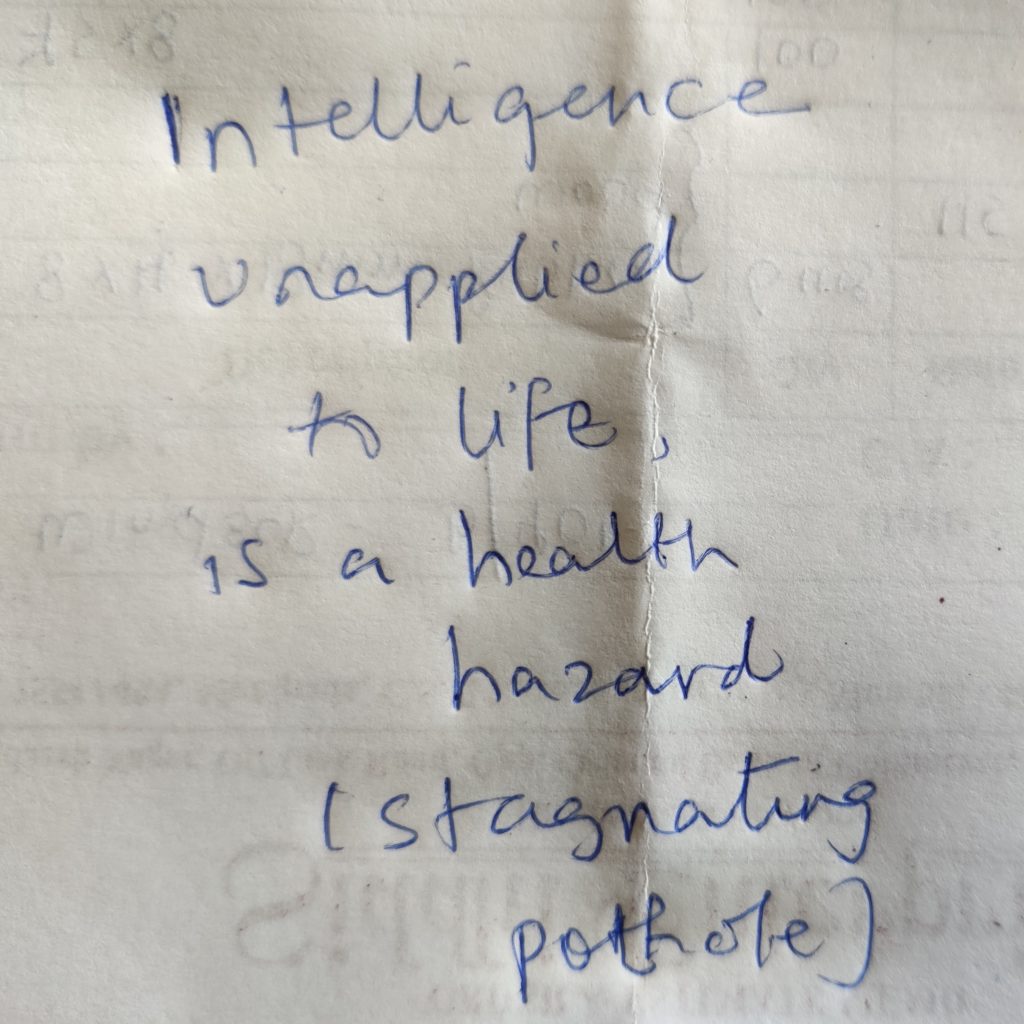 Intelligence
unapplied
to life,
is a health
hazard
(stagnating
pothole)